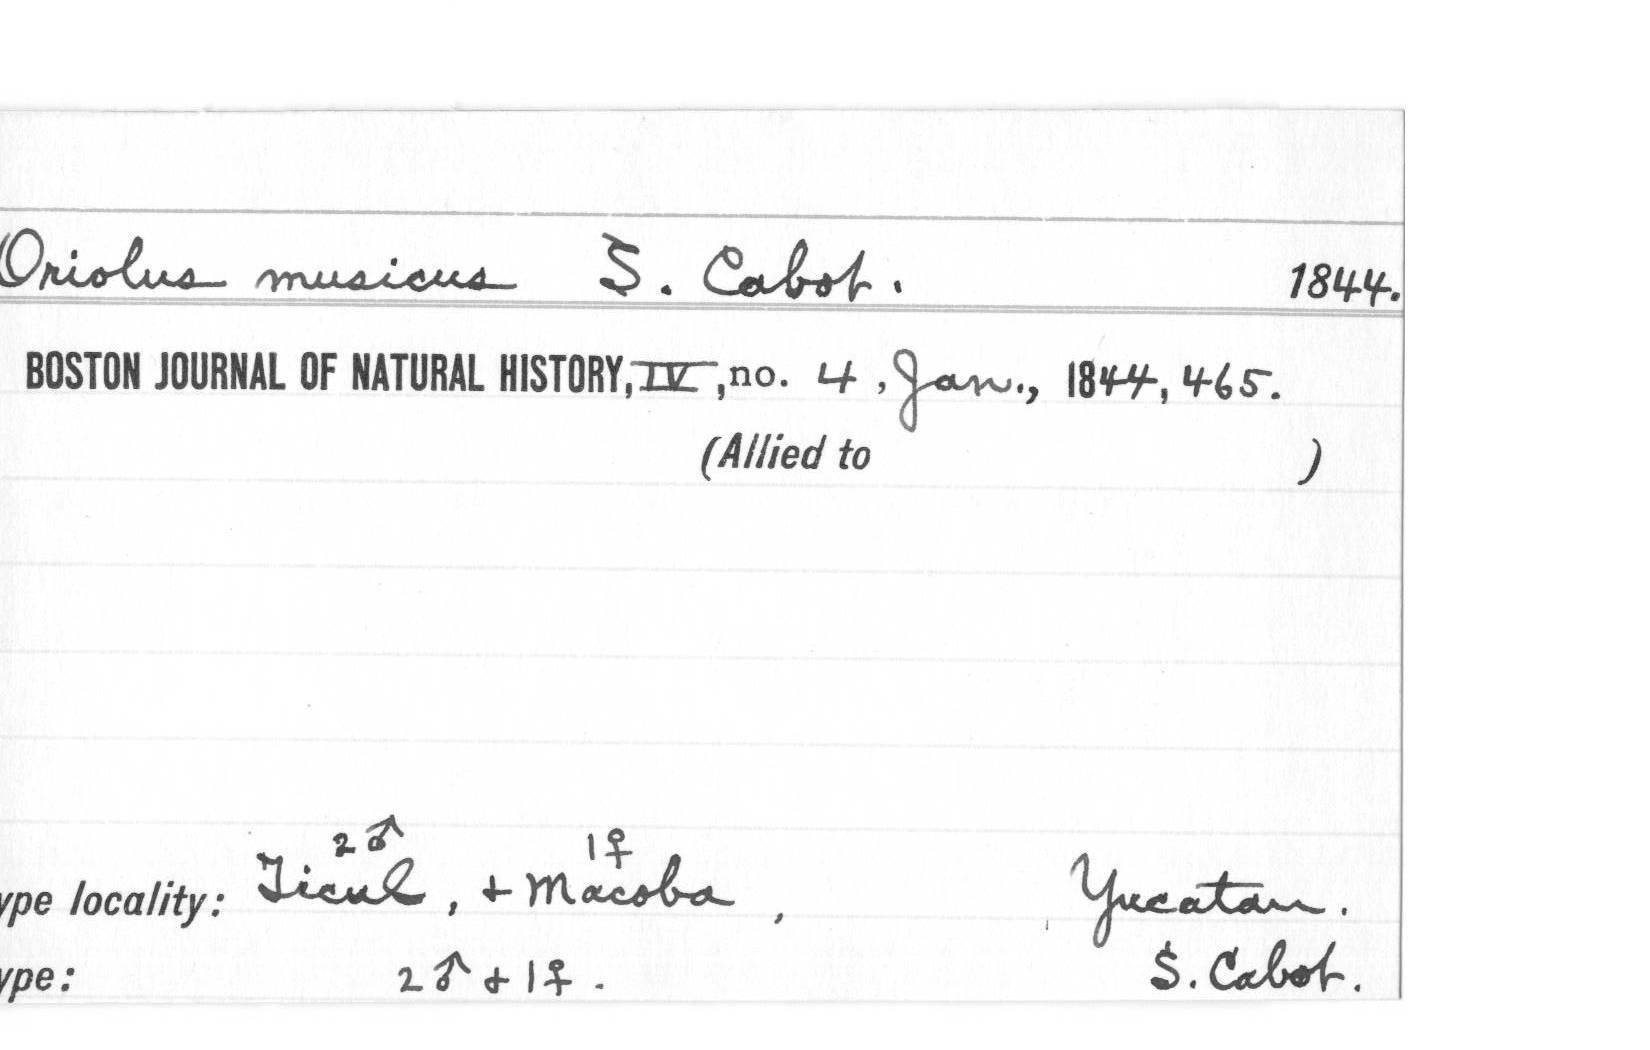 Oriolus musicus S. Cabot. 1844.
BOSTON JOURNAL OF NATURAL HISTORY, IV, no. 4, Jan., 1844, 465.
(Allied to )
2♂ 1♀
ype locality: Ticul, + Macoba, Yucatan.
ype: 2♂ + 1♀. S. Cabot.